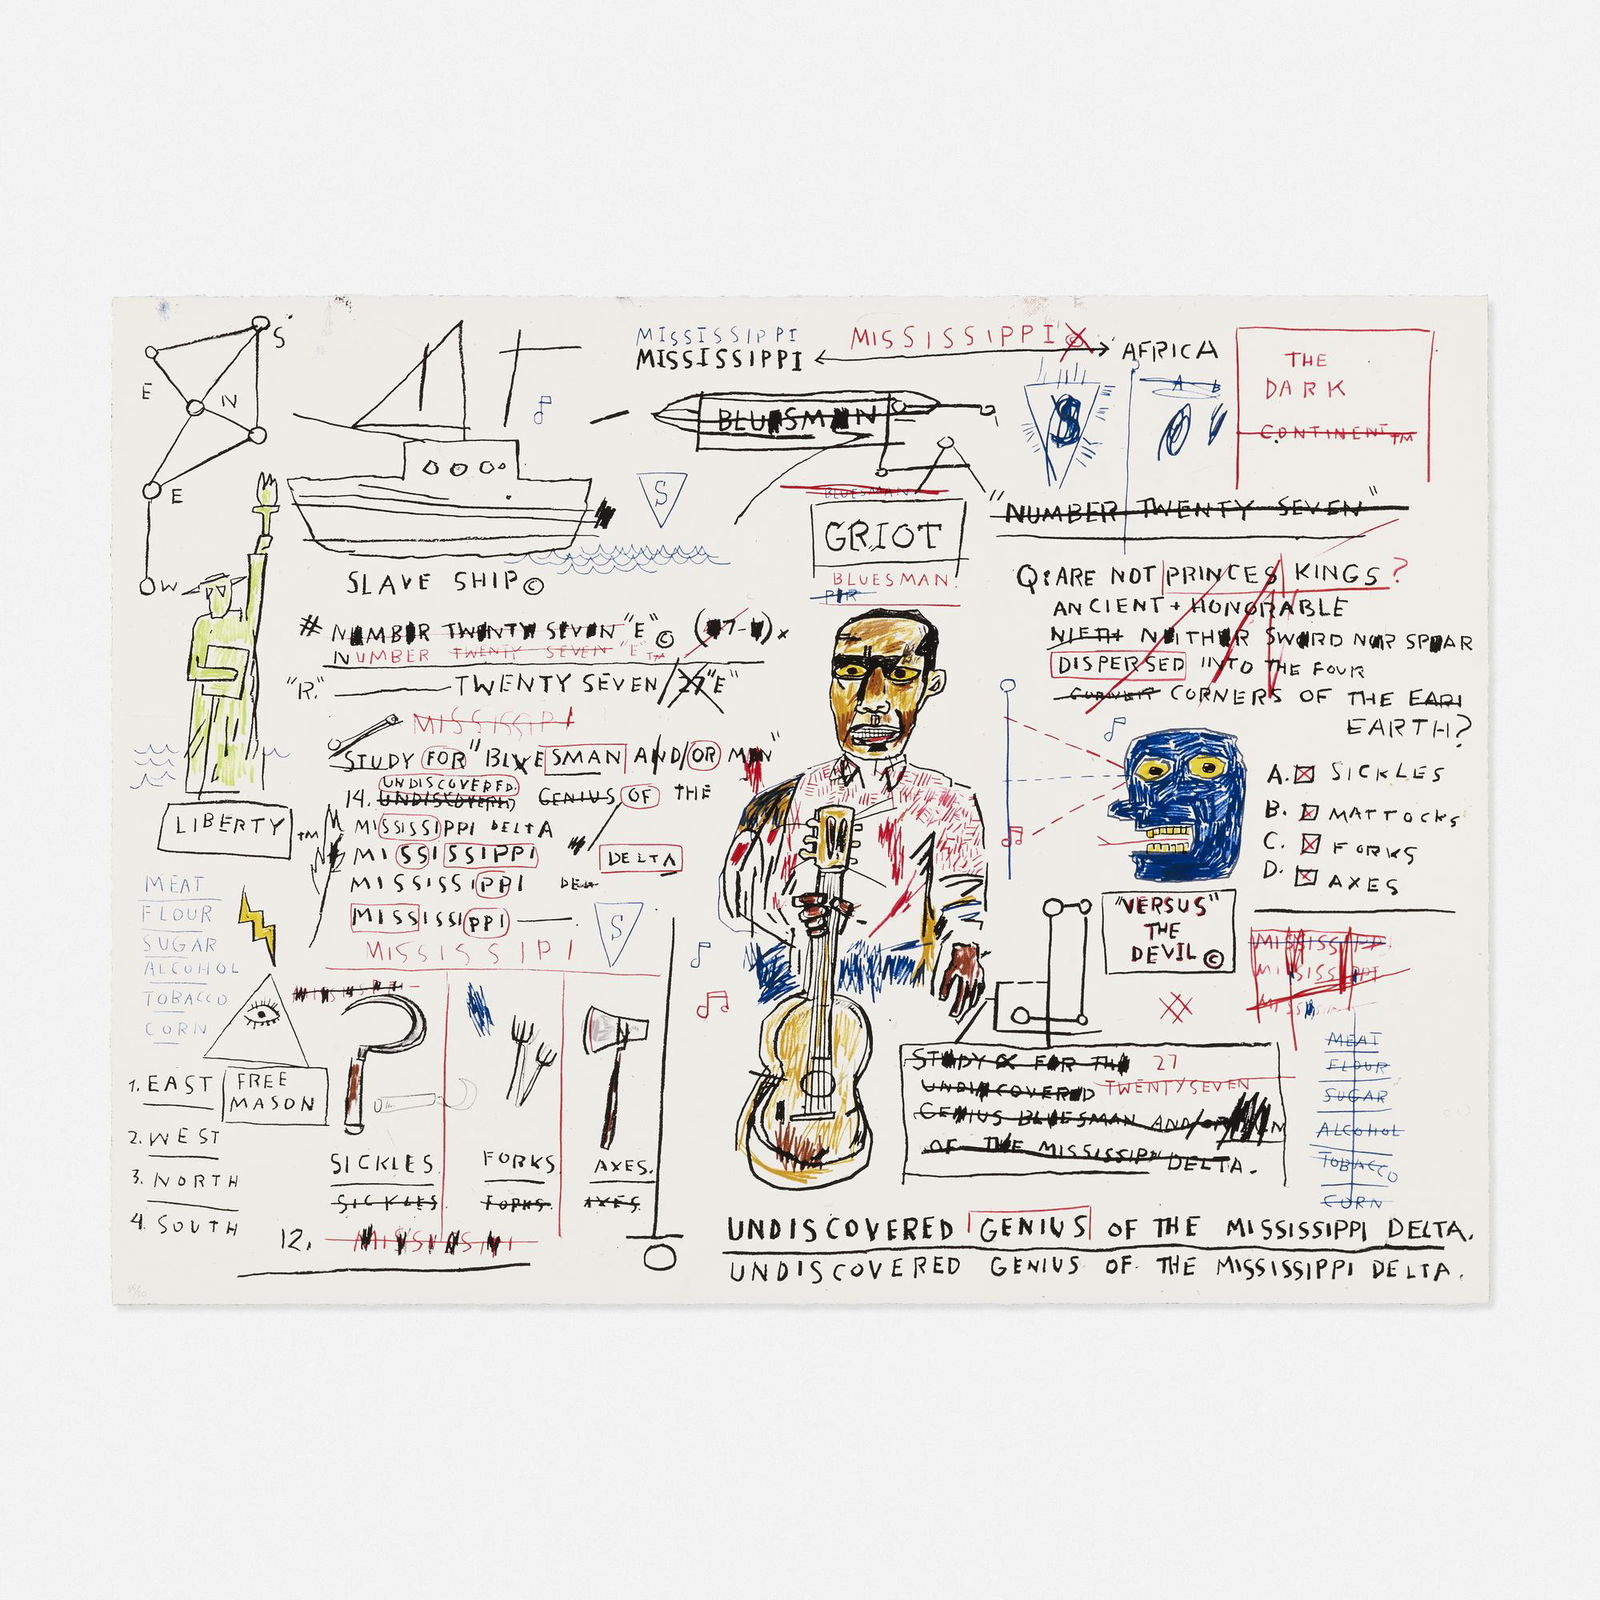 S
E
N
E
W
MISSISSIPPI
MISSISSIPPI
MISSISSIPPI
AFRICA
THE
DARK
CONTINENT™
BLUESMAN
S
A B
S
BLUESMAN
GRIOT
BLUESMAN
"NUMBER TWENTY SEVEN"
SLAVE SHIP©
# NUMBER TWENTY SEVEN "E"©
NUMBER TWENTY SEVEN "E"TM
"R." TWENTY SEVEN/27 "E"
MISSISSIPI
STUDY FOR "BLUESMAN AND/OR MAN"
UNDISCOVERED
14. UNDISCOVERED GENIUS OF THE
MISSISSIPPI DELTA
MISSISSIPPI
DELTA
MISSISSIPPI
MISSISSIPPI
MISSISSIPI
S
LIBERTY™
MEAT
FLOUR
SUGAR
ALCOHOL
TOBACCO
CORN
1. EAST
FREE
MASON
2. WEST
3. NORTH
4. SOUTH
SICKLES.
SICKLES
FORKS.
FORKS.
AXES.
AXES.
12.
Q: ARE NOT PRINCES KINGS?
ANCIENT + HONORABLE
NIETH NEITHER SWORD NOR SPEAR
DISPERSED INTO THE FOUR
CORNER CORNERS OF THE EAR
EARTH?
A. SICKLES
B. MATTOCKS
C. FORKS
D. AXES
"VERSUS"
THE
DEVIL©
MISSISSIPPI
MISSISSIPPI
STUDY FOR THE 27
UNDISCOVERED TWENTYSEVEN
GENIUS BLUESMAN AND/OR
OF THE MISSISSIPPI DELTA.
MEAT
FLOUR
SUGAR
ALCOHOL
TOBACCO
CORN
UNDISCOVERED GENIUS OF THE MISSISSIPPI DELTA.
UNDISCOVERED GENIUS OF THE MISSISSIPPI DELTA.